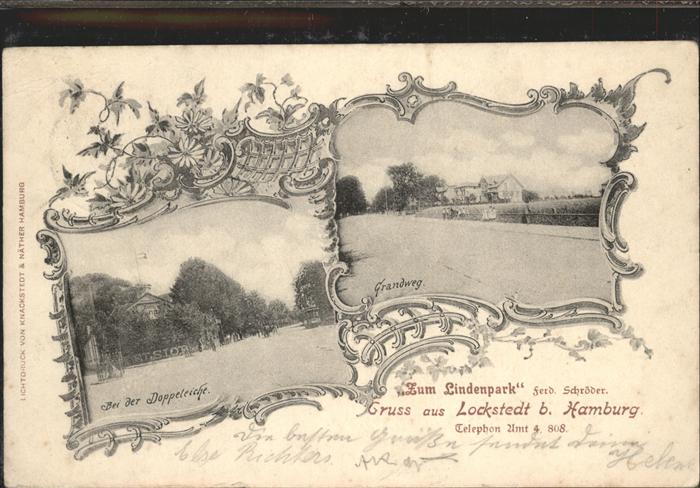 LICHTDRUCK VON KNACKSTEDT & NÄTHER HAMBURG
Grandweg.
Bei der Doppeleiche.
„Zum Lindenpark“ Ferd. Schröder.
Gruss aus Lockstedt b. Hamburg.
Telephon Amt 4, 808.
Die besten Grüße sendet Deine
Else Richters. Helene